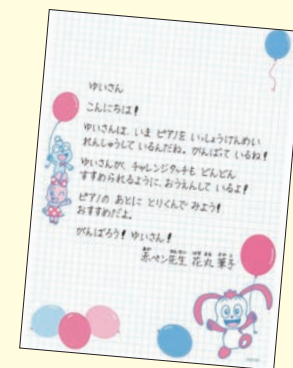 ゆいさん
こんにちは!
ゆいさんは、いま ピアノを いっしょうけんめい
れんしゅうして いるんだね。がんばって いるね!
ゆいさんが、チャレンジタッチも どんどん
すすめられるように、おうえんして いるよ!
ピアノの あとに とりくんで みよう!
おすすめだよ。
がんばろう! ゆいさん!
赤ペン先生 花丸 筆子